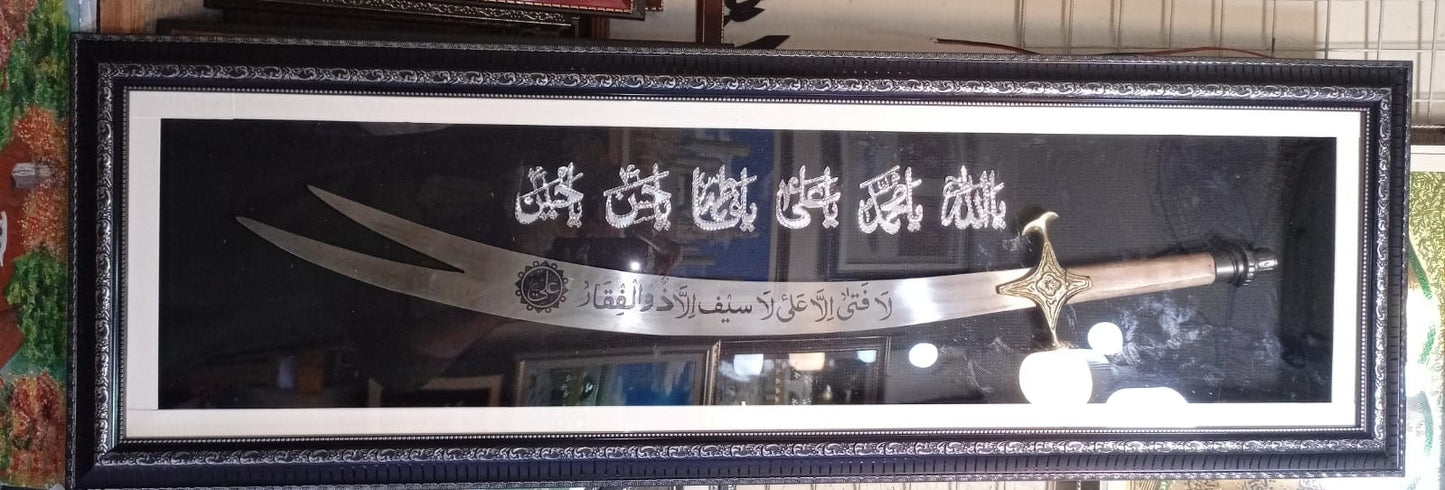 يا الله يا محمد يا علي يا فاطمة يا حسن يا حسين
لَا فَتىٰ اِلَّا عَلیْ لَا سَیْف اِلَّا ذُوالْفِقَارْ
علی